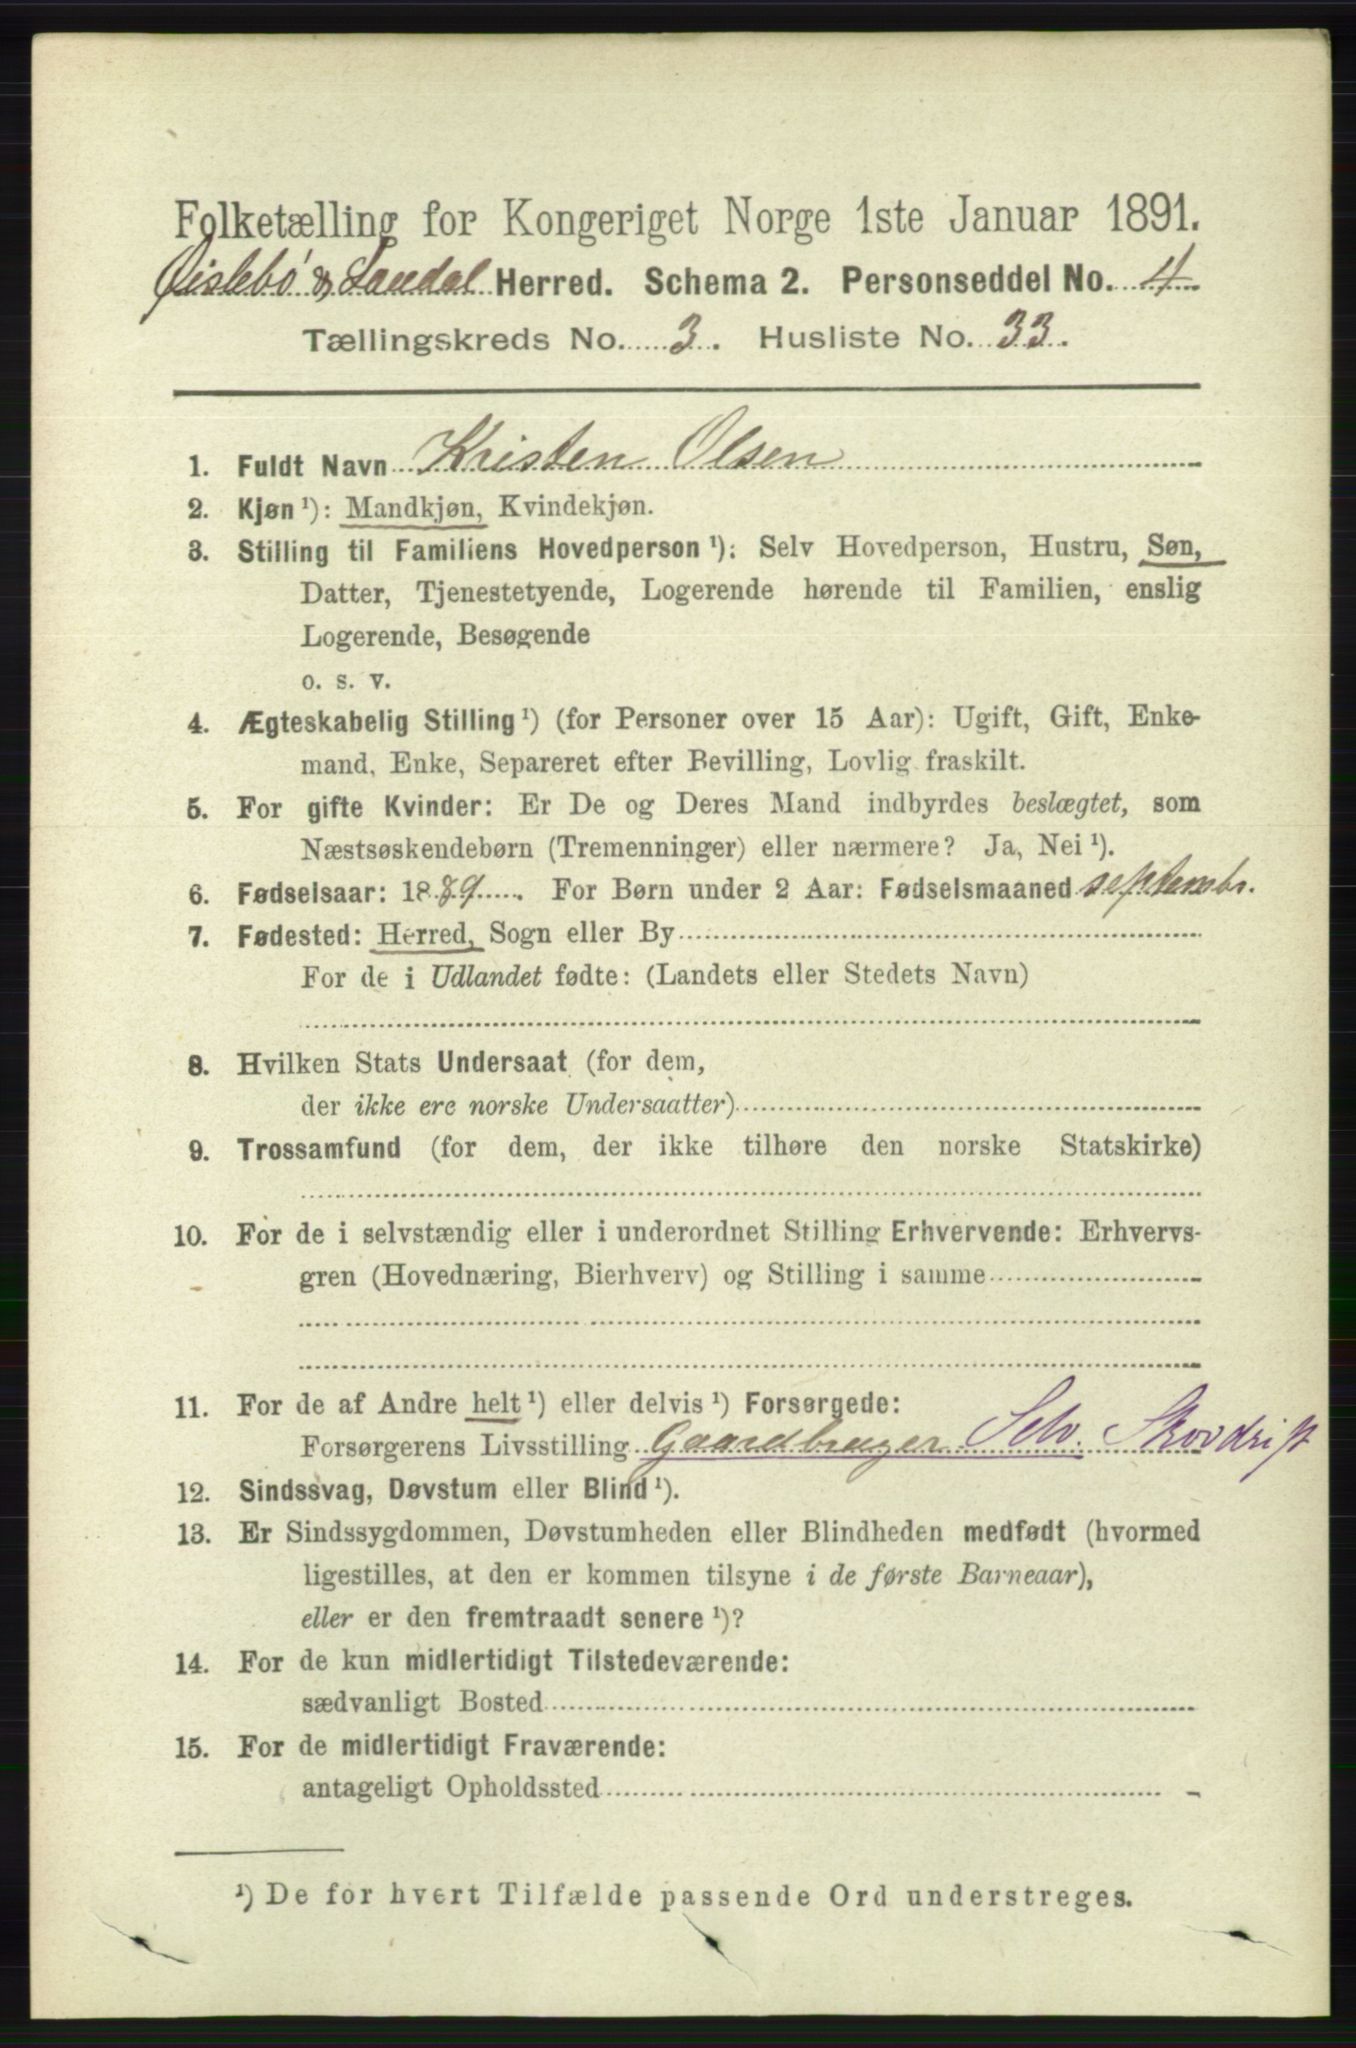 Folketælling for Kongeriget Norge 1ste Januar 1891.
Øislebø & Laudal Herred. Schema 2. Personseddel No. 4
Tællingskreds No. 3. Husliste No. 33.
1. Fuldt Navn Kristen Olsen
2. Kjøn ¹): Mandkjøn, Kvindekjøn.
3. Stilling til Familiens Hovedperson ¹): Selv Hovedperson, Hustru, Søn,
Datter, Tjenestetyende, Logerende hørende til Familien, enslig
Logerende, Besøgende
o. s. v.
4. Ægteskabelig Stilling ¹) (for Personer over 15 Aar): Ugift, Gift, Enke-
mand, Enke, Separeret efter Bevilling, Lovlig fraskilt.
5. For gifte Kvinder: Er De og Deres Mand indbyrdes beslægtet, som
Næstsøskendebørn (Tremenninger) eller nærmere? Ja, Nei ¹).
6. Fødselsaar: 1889. For Børn under 2 Aar: Fødselsmaaned septembr.
7. Fødested: Herred, Sogn eller By
For de i Udlandet fødte: (Landets eller Stedets Navn)
8. Hvilken Stats Undersaat (for dem,
der ikke ere norske Undersaatter)
9. Trossamfund (for dem, der ikke tilhøre den norske Statskirke)
10. For de i selvstændig eller i underordnet Stilling Erhvervende: Erhvervs-
gren (Hovednæring, Bierhverv) og Stilling i samme
11. For de af Andre helt ¹) eller delvis ¹) Forsørgede:
Forsørgerens Livsstilling Gaardbruger Selv. Skovdrift
12. Sindssvag, Døvstum eller Blind ¹).
13. Er Sindssygdommen, Døvstumheden eller Blindheden medfødt (hvormed
ligestilles, at den er kommen tilsyne i de første Barneaar),
eller er den fremtraadt senere ¹)?
14. For de kun midlertidigt Tilstedeværende:
sædvanligt Bosted
15. For de midlertidigt Fraværende:
antageligt Opholdssted
¹) De for hvert Tilfælde passende Ord understreges.